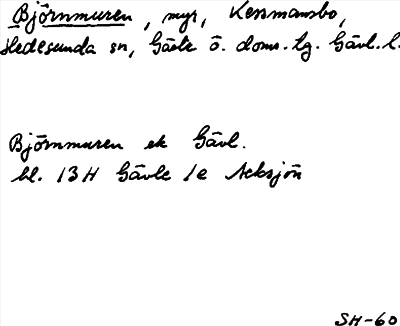 Björnmuren, myr, Kessmansbo,
Hedesunda sn, Gävle ö. doms. lg. Gävl. l.
Björnmuren ek Gävl.
bl. 13H Gävle 1e Acksjön
SH-60